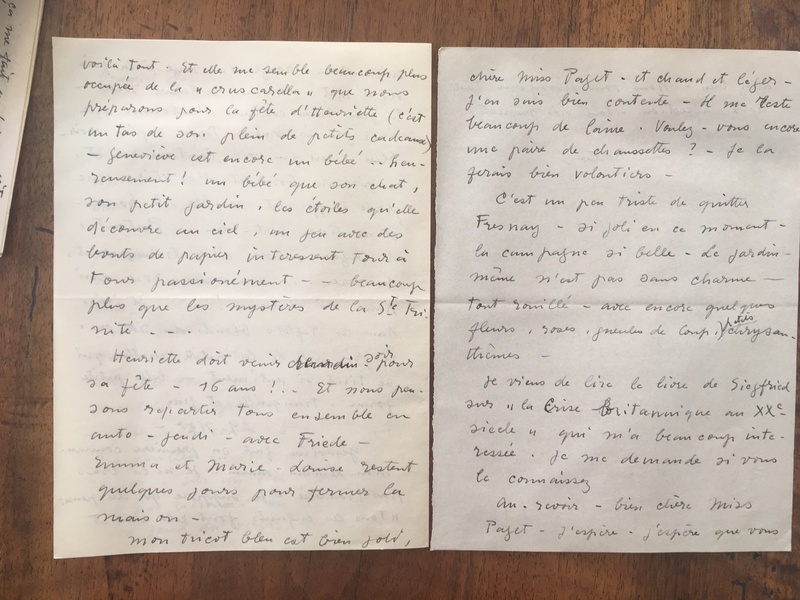 voilà tout. Et elle me semble beaucoup plus
occupée de la "cruscarella" que nous
préparons pour la fête d'Henriette (c'est
un tas de son plein de petits cadeaux)
- Geneviève est encore un bébé .. heu-
reusement! un bébé que son chat,
son petit jardin, les étoiles qu'elle
découvre au ciel, un jeu avec des
bouts de papier interessent tour à
tour passionément - - beaucoup
plus que les mystères de la Ste Tri-
nité - - -
Henriette doit venir soir pour
sa fête - 16 ans!.. Et nous pen-
sons repartir tous ensemble en
auto - jeudi - avec Friede -
Emma et Marie-Louise restent
quelques jours pour fermer la
maison -
Mon tricot bleu est bien joli,
chère Miss Paget - et chaud et léger -
j'en suis bien contente - Il me reste
beaucoup de laine. Voulez-vous encore
une paire de chaussettes? - Je la
ferais bien volontiers -
C'est un peu triste de quitter
Fresnay - si joli en ce moment -
la campagne si belle - Le jardin-
même n'est pas sans charme -
tout rouillé - avec encore quelques
fleurs, roses, gueules de loup, chrysan-
thèmes -
Je viens de lire le livre de Siegfried
sur "la Crise Britannique au XXe
siecle" qui m'a beaucoup inte-
ressée. Je me demande si vous
le connaissez
Au-revoir - bien chère Miss
Paget - J'espère - j'espère que vous